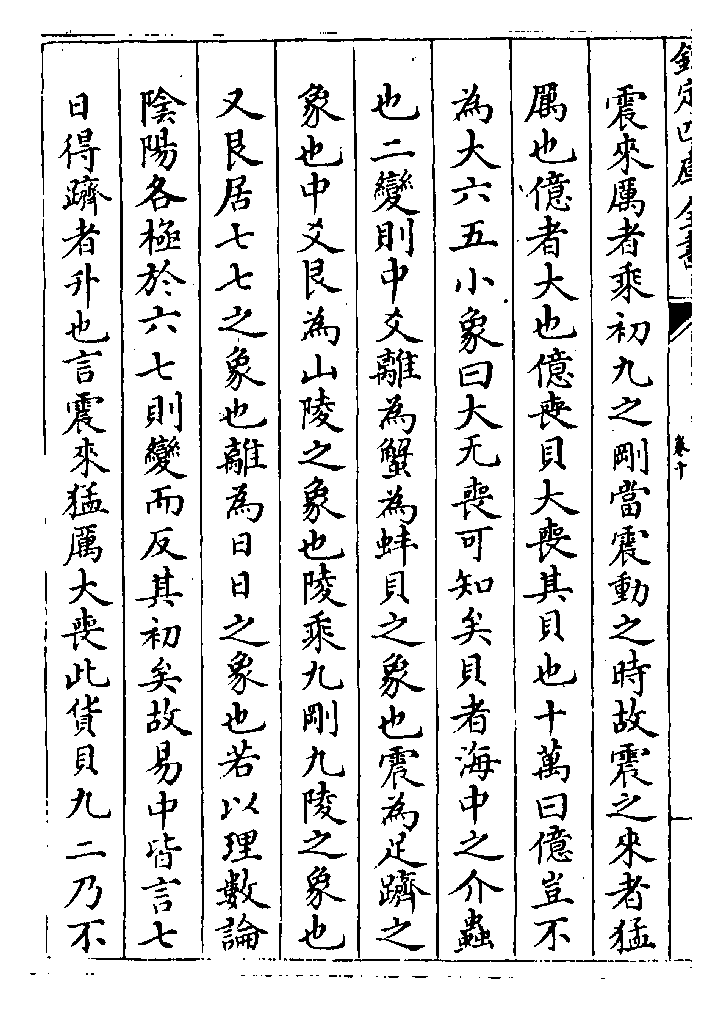 欽定四庫全書
卷十
震來厲者乘初九之剛當震動之時故震之來者猛
厲也億者大也億喪貝大喪其貝也十萬曰億豈不
為大六五小象曰大无喪可知矣貝者海中之介蟲
也二變則中爻離為蟹為蚌貝之象也震為足躋之
象也中爻艮為山陵之象也陵乘九剛九陵之象也
又艮居七七之象也離為日日之象也若以理數論
陰陽各極於六七則變而反其初矣故易中皆言七
日得躋者升也言震來猛厲大喪此貨貝九二乃不